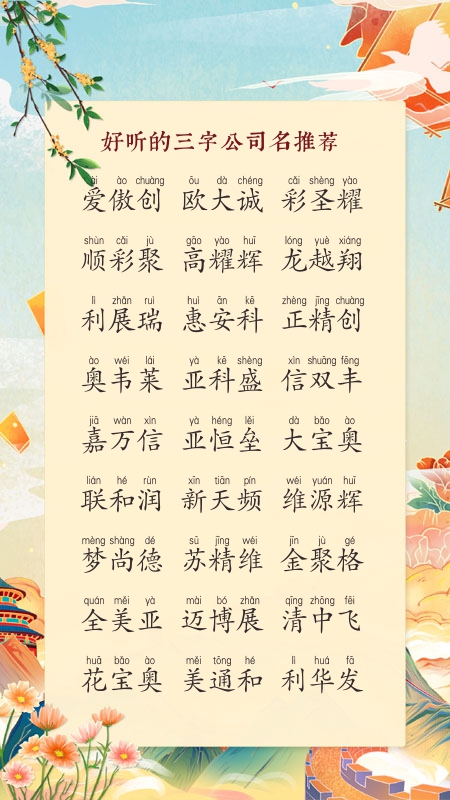 好听的三字公司名推荐
ài ào chuàng ōu dà chéng cǎi shèng yào
爱傲创 欧大诚 彩圣耀
shùn cǎi jù gāo yào huī lóng yuè xiáng
顺彩聚 高耀辉 龙越翔
lì zhǎn ruì huì ān kē zhèng jīng chuàng
利展瑞 惠安科 正精创
ào wéi lái yà kē shèng xìn shuāng fēng
奥韦莱 亚科盛 信双丰
jiā wàn xìn yà héng lěi dà bǎo ào
嘉万信 亚恒垒 大宝奥
lián hé rùn xīn tiān pín wéi yuán huī
联和润 新天频 维源辉
mèng shàng dé sū jīng wéi jīn jù gé
梦尚德 苏精维 金聚格
quán měi yà mài bó zhǎn qīng zhōng fēi
全美亚 迈博展 清中飞
huā bǎo ào měi tōng hé lì huá fā
花宝奥 美通和 利华发